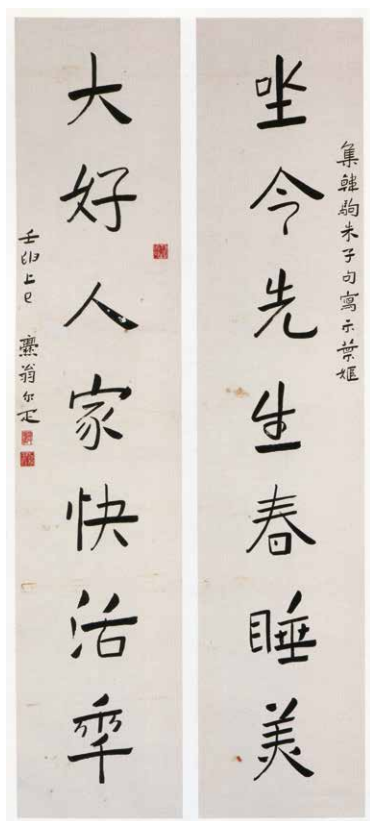 坐令先生春睡美
集韓駒朱子句寫示葉嫗
大好人家快活秊
壬申上巳 翁尔疋